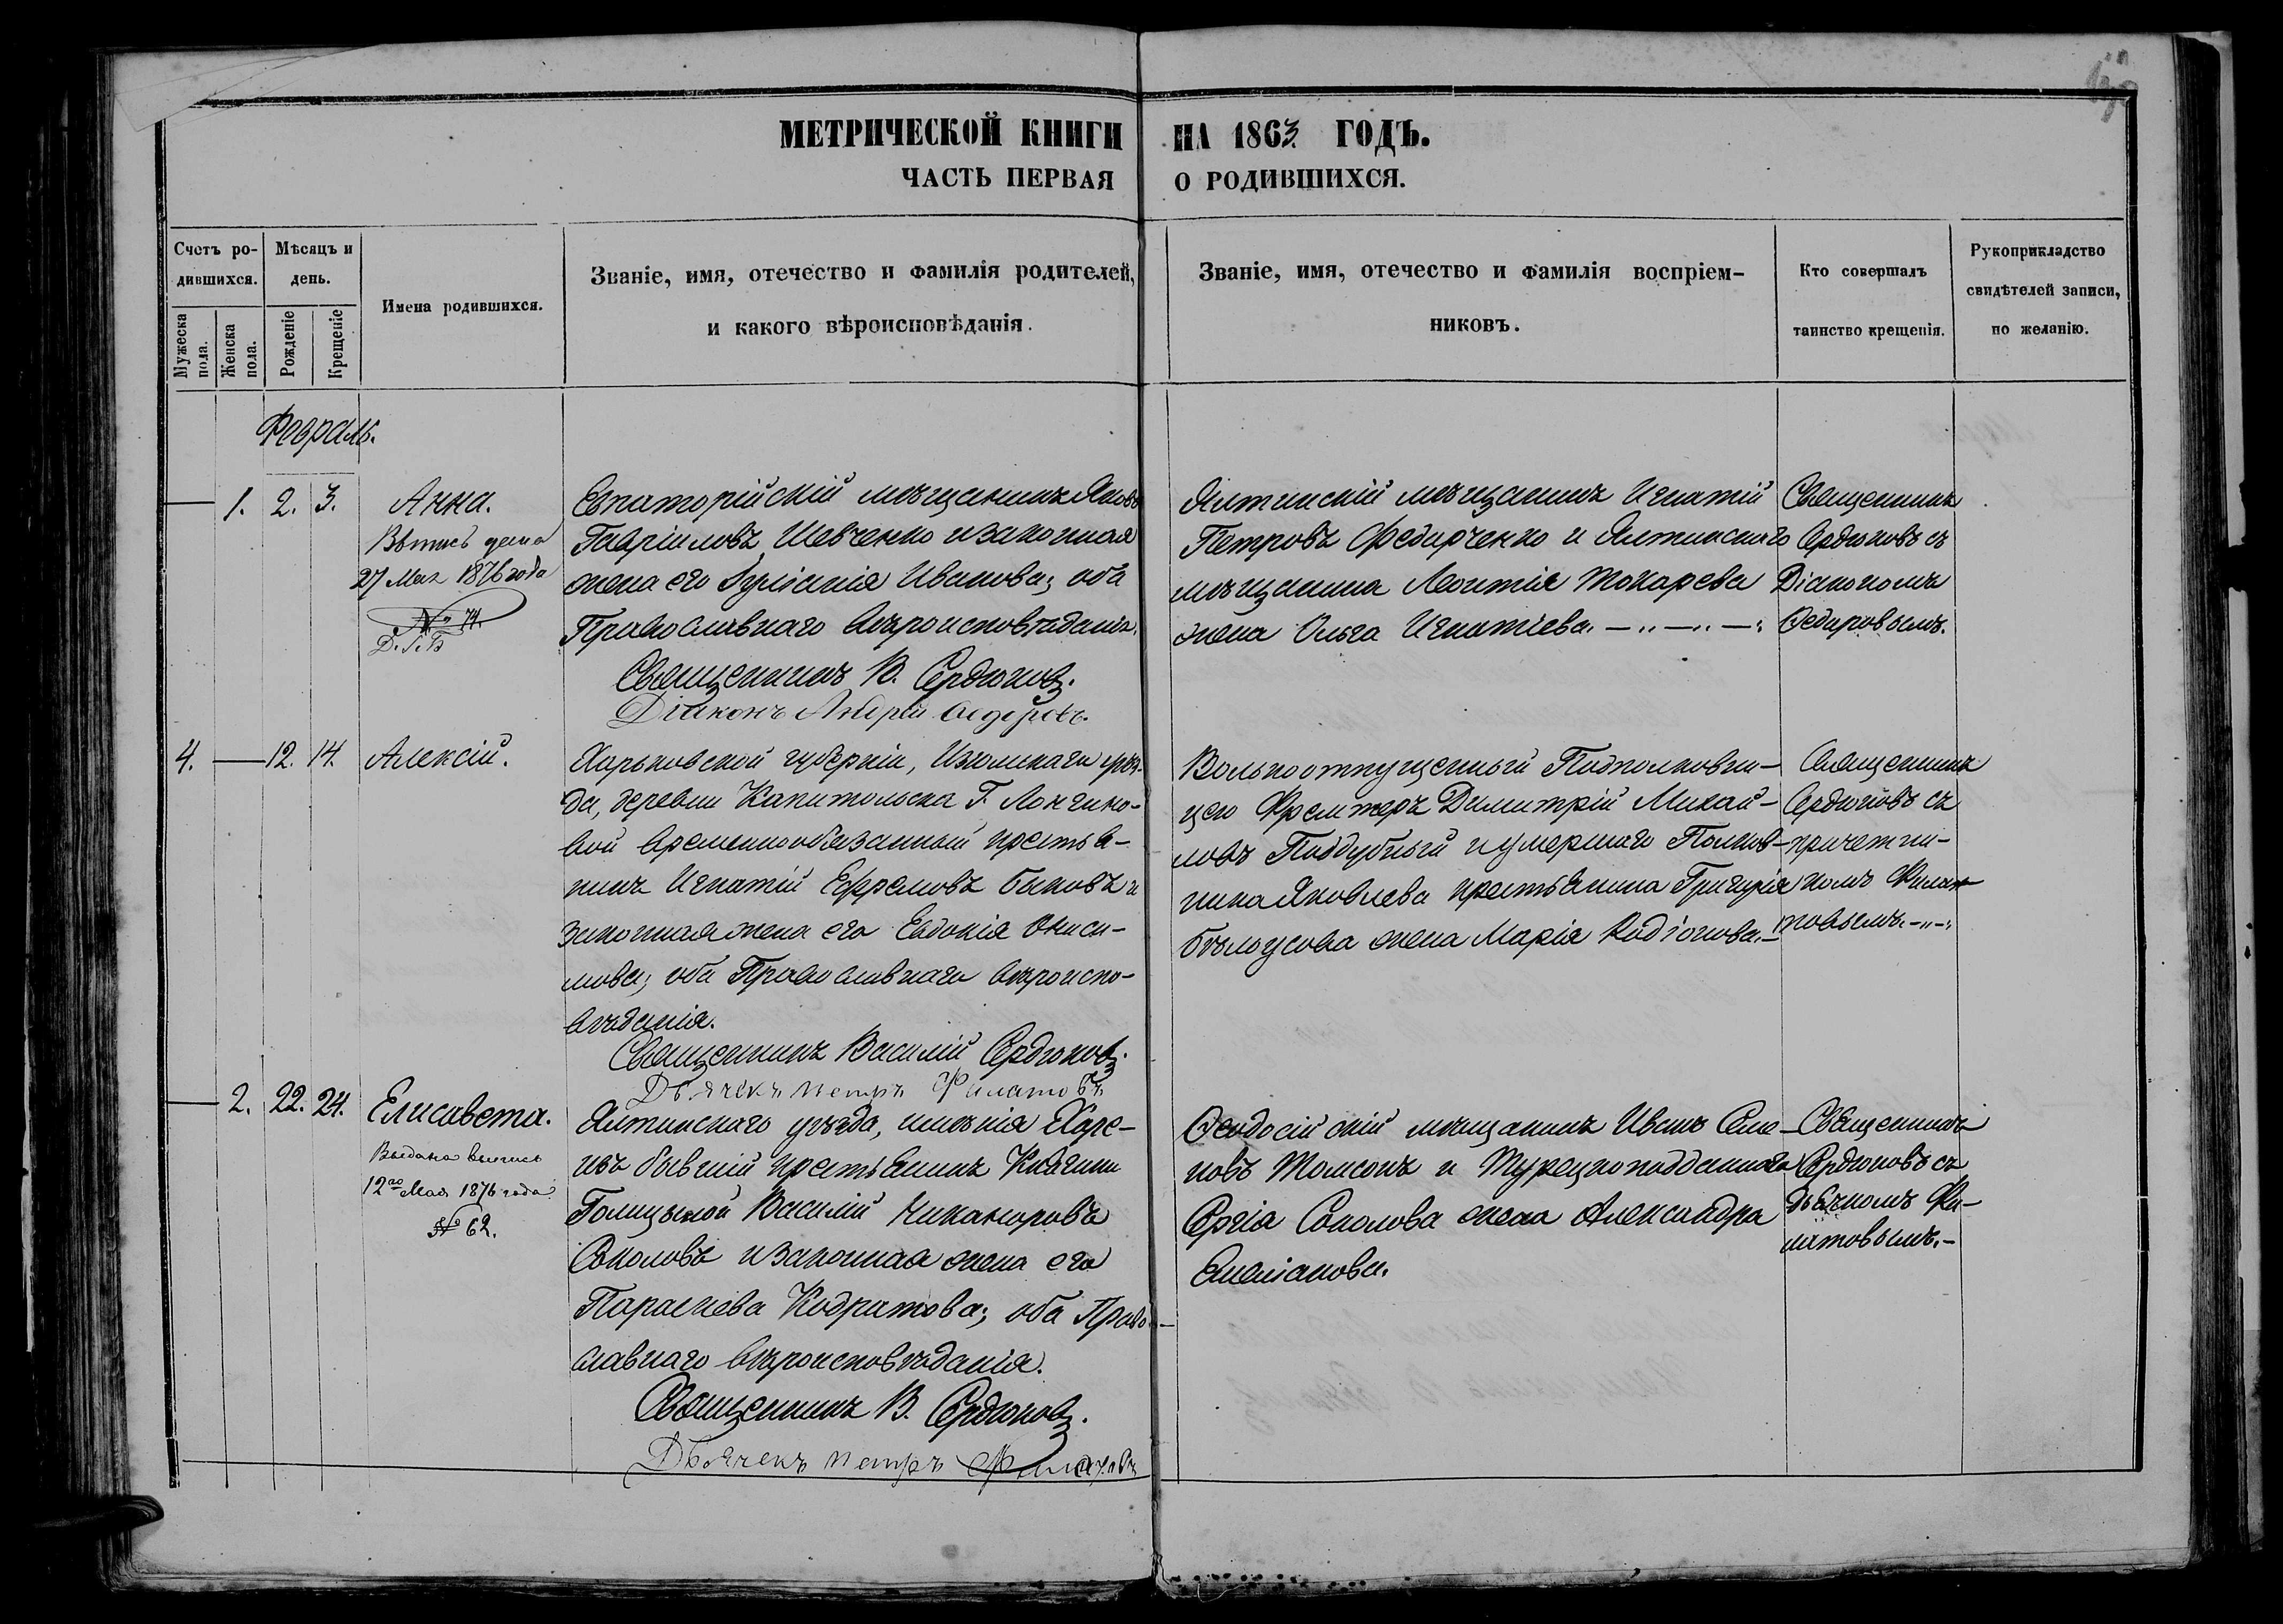 МЕТРИЧЕСКОЙ КНИГИ НА 1863. ГОДЪ.
ЧАСТЬ ПЕРВАЯ О РОДИВШИХСЯ.
Счетъ ро-
дившихся.
Мужеска
пола.
Женска
пола.
Мѣсяцъ и
день.
Рожденіе
Крещеніе
Имена родившихся.
Званіе, имя, отечество и фамилія родителей,
и какого вѣроисповѣданія.
Званіе, имя, отечество и фамилія воспріем-
никовъ.
Кто совершалъ
таинство крещенія.
Рукоприкладство
свидѣтелей записи,
по желанію.
Февраль.
1. 2. 3.
Анна.
Выпись дана
27 Мая 1876 года
№ 74.
Евпаторійскій мѣщанинъ Яковъ
Гавріиловъ Шевченко и законная
жена его Іуліанія Иванова; оба
Православнаго вѣроисповѣданія.
Священникъ В. Сердюковъ.
Діаконъ Андрей Федоровъ.
Ялтинскій мѣщанинъ Игнатій
Петровъ Федорченко и Ялтинскаго
мѣщанина Леонтія Токарева
жена Ольга Игнатіева.
Священникъ
Сердюковъ съ
Діакономъ
Ѳедоровымъ.
4. 12. 14.
Алексій.
Харьковской губерніи, Изюмскаго уѣз-
да, деревни Капитольска Г. Лонгино-
вой временнообязанный крестья-
нинъ Игнатій Ефремовъ Быковъ и
законная жена его Евдокія Ониси-
мова; оба Православнаго вѣроиспо-
вѣданія.
Священникъ Василій Сердюковъ.
Дьячекъ Петръ Филатовъ
Вольноотпущенный Подполковни-
цею Димитрій Михай-
ловъ Поддубный и умершаго Полков-
ника Яковлева крестьянина Григорія
Бѣлоусова жена Марія Родіонова.
Священникъ
Сердюковъ съ
причетни-
комъ Фила-
товымъ.
2. 22. 24.
Елисавета.
Выдана выпись
12го Мая 1876 года
№ 62.
Ялтинскаго уѣзда, имѣнія Харе-
изъ бывшій крестьянинъ Княгини
Голицыной Василій Никаноровъ
Соколовъ и законная жена его
Параскева Кодратова; оба Право-
славнаго вѣроисповѣданія.
Священникъ В. Сердюковъ.
Дьячекъ Петръ Филатовъ
Ѳеодосійскій мѣщанинъ Иванъ Семе-
новъ Томсонъ и Турецкоподданнаго
Сергія Соколова жена Александра
Емеліанова.
Священникъ
Сердюковъ съ
Дьячкомъ Фи-
латовымъ.-